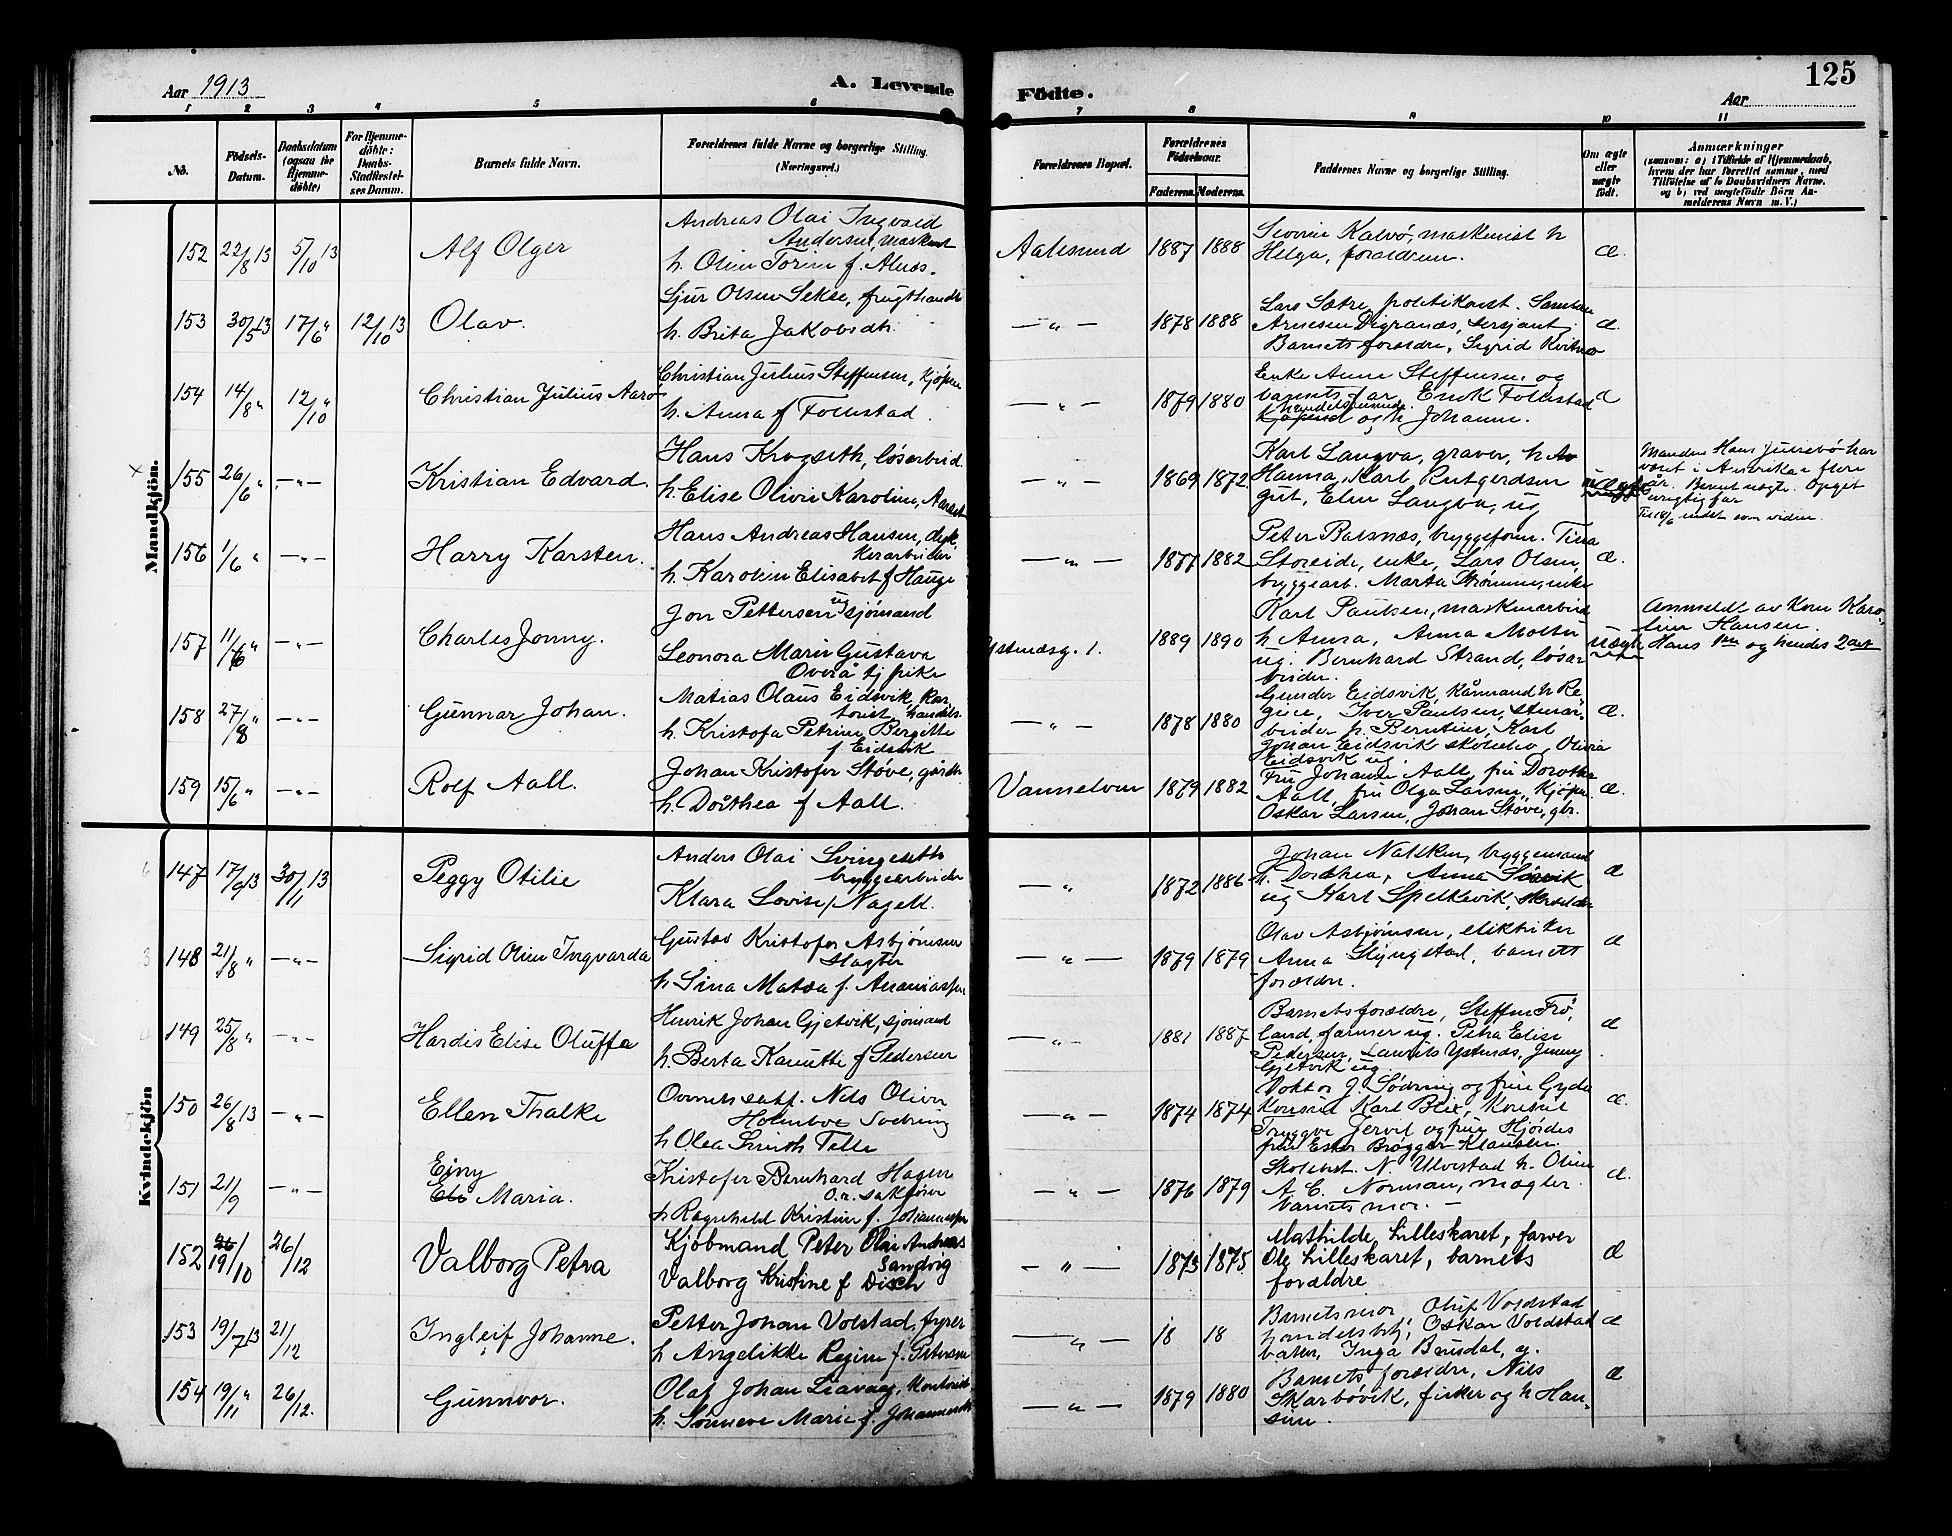 Aar 1913
A. Levende
Födte.
Aar
125
1 2 3 4 5 6 7 8 9 10 11
No.
Födsels-Datum.
Daabsdatum (ogsaa for Hjemme-döbte)
For Hjemme-döbte: Daabs-Stadfæstelses Datum.
Barnets fulde Navn.
Forældrenes fulde Navne og borgerlige Stilling. (Næringsvei.)
Forældrenes Bopæl.
Forældrenes Födselsaar.
Faderens. Moderens.
Faddernes Navne og borgerlige Stilling.
Om ægte eller uægte födt.
Anmærkninger
(saasom: a) i Tilfælde af Hjemmedaab, hvem der har forrettet samme, med Tilföielse af to Daabsvidners Navne, og b) ved uægtefödte Börn Anmelderens Navn m. V.)
Mandkjön.
152 22/8 13 5/10 13 Alf Olger
Andreas Olai Ingvald
Andersen, maskinist
h. Oline Torine f. Alnæs.
Aalesund 1887 1888
Kalvö, maskinist h
Helga, forældrene.
æ.
153 30/5 13 17/6 " 12/10 13 Olav.
Sjur Olsen Sekse, frugthandl.
h. Brita Jakobsdh.
— " — 1878 1888
Lars Sætre, politikonst.
Arnesen Digranæs, sersjant,
Barnets forældre, Sigrid
æ.
154 14/8 " 12/10 " Christian Julius Aarö
Christian Julius Steffensen, kjöpm
h. Anna f Follestad.
— " — 1879 1880
Enke Anne Steffensen og
barnets far Follestad
og h. Johanne.
æ
155 26/6 " — " — Kristian Edvard.
Hans Krogseth, løsarbeid.
h. Elise Olivie Karoline,
— " — 1869 1872
Karl Langva, graver, h
Hanna, Karl Rutgersen
gut, Eline Langva, ug
Manden Hans Julebö har
været i Amerika flere
år. Barnet uægte. Opget
urigtig far
156 1/6 " — " — Harry Karsten.
Hans Andreas Hansen, dyk
kerarbeider
h. Karoline Elisabet f Hauge
— " — 1877 1882
Peter Balsnæs, bryggeform. Tina
Storeide, enke, Lars Olsen,
bryggearb. Marta enke
æ.
157 11/6 " — " — Charles Jonny.
Jon Pettersen ug sjömand
Leonora Marie Gustava
Overå tj pike
Ystenæsg. 1. 1889 1890
Karl Paulsen, maskinarbeid
h Anna, Anna Molter
ug. Bernhard Strand, løsar
beider.
uægte
Anmeldt av Kone Karo-
line Hansen.
Hans 1ste og hendes 2det
158 27/8 " — " — Gunnar Johan.
Matias Olaus Eidsvik,
h. Kristofa Petrine Bergitte
f Eidsvik
— " — 1878 1880
Gunder Eidsvik, kårmand h Re
gine, Iver Paulsen,
h. Berntine, Karl
Johan Eidsvik skoleelev, Olivia
Eidsvik ug.
æ.
159 15/6 " — " — Rolf Aall.
Johan Kristofer Støve, gårdbr
h. Dorthea f Aall.
Vannelven 1879 1882
Fru Johanne Aall, fru Dorothea
Aall, fru Olga Larsen, Kjöpm.
Oskar Larsen, Johan Støve, gbr.
æ.
Kvindekjön
147 17/9 13 30/11 13 Peggy Otilie
Anders Olai Svingeseth
bryggearbeider
Klara Lovise f Nagell.
— " 1872 1886
Johan Nakken, bryggemand
h. Dorthea, Anna
ug Karl Spelkevik,
æ
148 21/8 " — " — Sigrid Oline Ingvarda
Gustav Kristofer Asbjörnsen
slagter
h. Sina Matea f. Ananiassen
— " — 1879 1879
Olav Asbjörnsen, elektriker
Anna Slyngstad, barnets
forældre.
æ
149 25/8 " — " — Hardis Elise Oluffa
Henrik Johan Gjetvik, sjömand
h. Berta Kanutte f Pedersen
— " — 1881 1887
Barnets forældre, Steffen Frö
land, farmer ug. Petra Elise
Pedersen, Laurits Ystenæs, Jenny
Gjetvik ug.
æ
150 26/8 13 — " — Ellen Thalke
Overretssakf. Nils Oliver
Holmboe Sødring
h Olea Smith Telle
— " — 1874 1874
Doktor J. Södring og frue Gyda
Konsul Karl Blix, Konsul
Tryggve Jervel og frue Hjördes
frue Ester Brøgger Klausen.
æ.
151 21/9 — " — Einy Maria.
Kristofer Bernhard Hagen
O.r. sakförer
h Ragnhild Kristine f. Johannessen
— " — 1876 1879
Skolebest. N. Ulvestad h. Oline
A. C. Norman, mægler
barnets mor. —
æ.
152 19/10 26/12 Valborg Petra
Kjöbmand Peter Olai Andreas
Sandvig
Valborg Kristine f Disch
— " — 1873 1875
Mathilde Lilleskaret, farver
Ole Lilleskaret, barnets
forældre
æ
153 19/7 13 21/12 Ingleif Johanne.
Petter Johan Volstad, fyrer
h Angelikke Regine f. Petersen
— " — 18 18
Barnets mor, Oluf Voldstad
handelsbetj, Oskar Voldstad
Inga Brusdal, ug.
æ
154 19/11 " 26/12. Gunnvor.
Olaf Johan Liavaag, Kontorist
h. Sönneve Marie f. Johannesen
— " — 1879 1880
Barnets forældre, Nils
Skarbövik, fisker og h Han-
sine.
æ